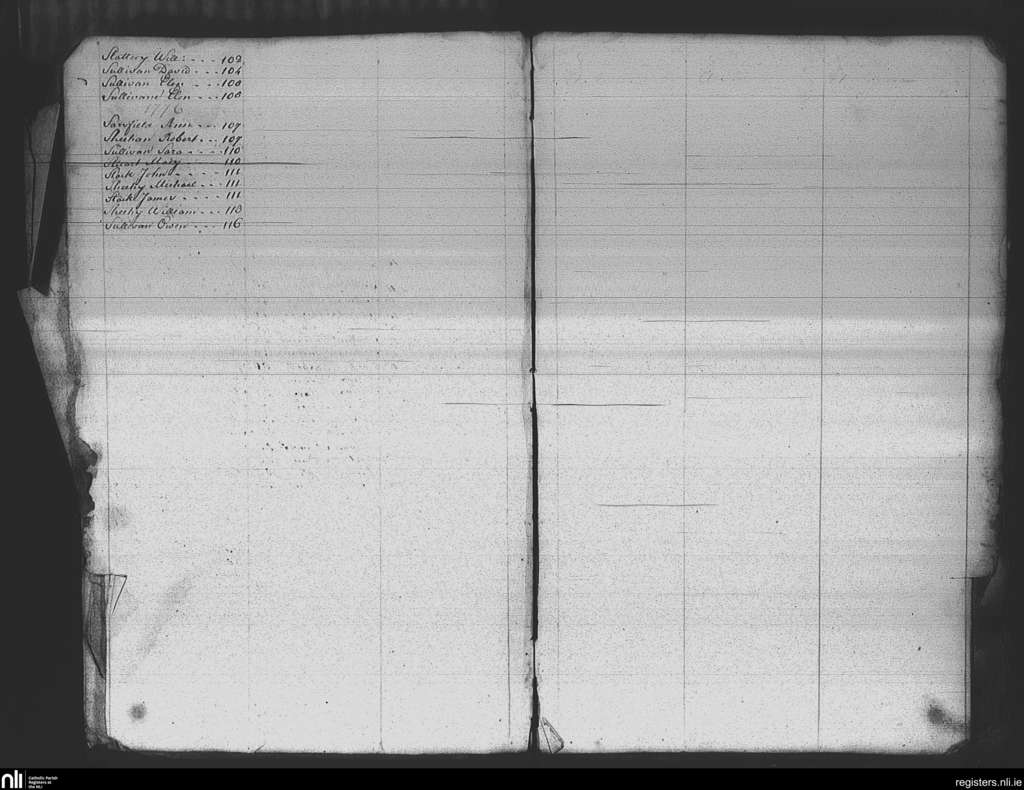 Slattery Will: - - - 102
Sullivan David - - - 104
Sullivan Elen - - - 106
Sullivane Elen - - - 106
1776
Sarsfield Anne - - - 107
Sheehan Robert - - - 107
Sullivan Sara - - - 110
Stuart Mary - - - 110
Stack John - - - 111
Sheehy Michael - - - 111
Stack James - - - 111
Sheehy William - - - 113
Sullivan Owen - - - 116
nli
Catholic Parish
Registers at
the NLI
registers.nli.ie